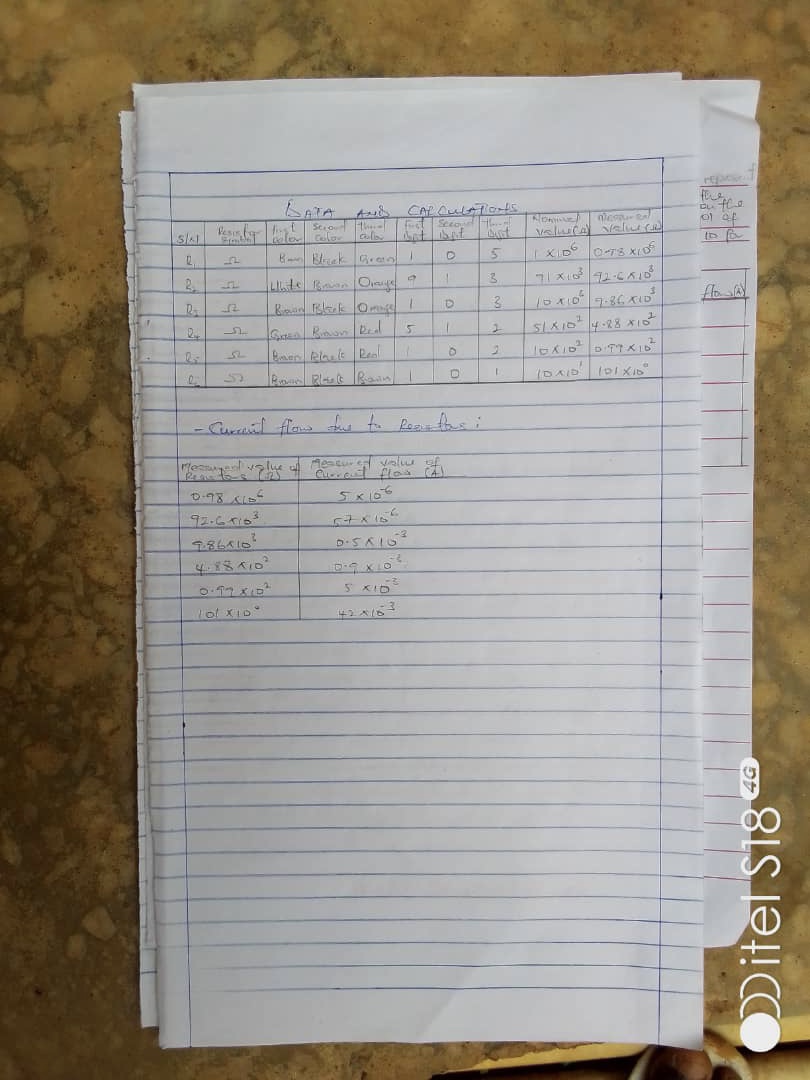 DATA AND CALCULATIONS
S/N Resistor Symbol First Color Second Color Third Color First Digit Second Digit Third Digit Nominal Value (Ω) Measured Value (Ω)
R₁ Ω Brown Black Green 1 0 5 1 × 10⁶ 0.98 × 10⁶
R₂ Ω White Brown Orange 9 1 3 91 × 10³ 92.6 × 10³
R₃ Ω Brown Black Orange 1 0 3 9.86 × 10³
R₄ Ω Green Brown Red 5 1 2 51 × 10² 4.88 × 10²
R₅ Ω Brown Black Red 1 0 2 10 × 10² 0.99 × 10²
Ω Brown Black Brown 1 0 1 10 × 10¹ 101 × 10⁰
- Current flow due to Resistors :
Measured value of Resistors (Ω) Measured value of Current flow (A)
0.98 × 10⁶ 5 × 10⁻⁶
92.6 × 10³ 57 × 10⁻⁶
9.86 × 10³ 0.5 × 10⁻³
4.88 × 10² 0.9 × 10⁻³
0.99 × 10² 5 × 10⁻³
101 × 10⁰ 42 × 10⁻³
the
on the
flow (A)
itel S18 4G